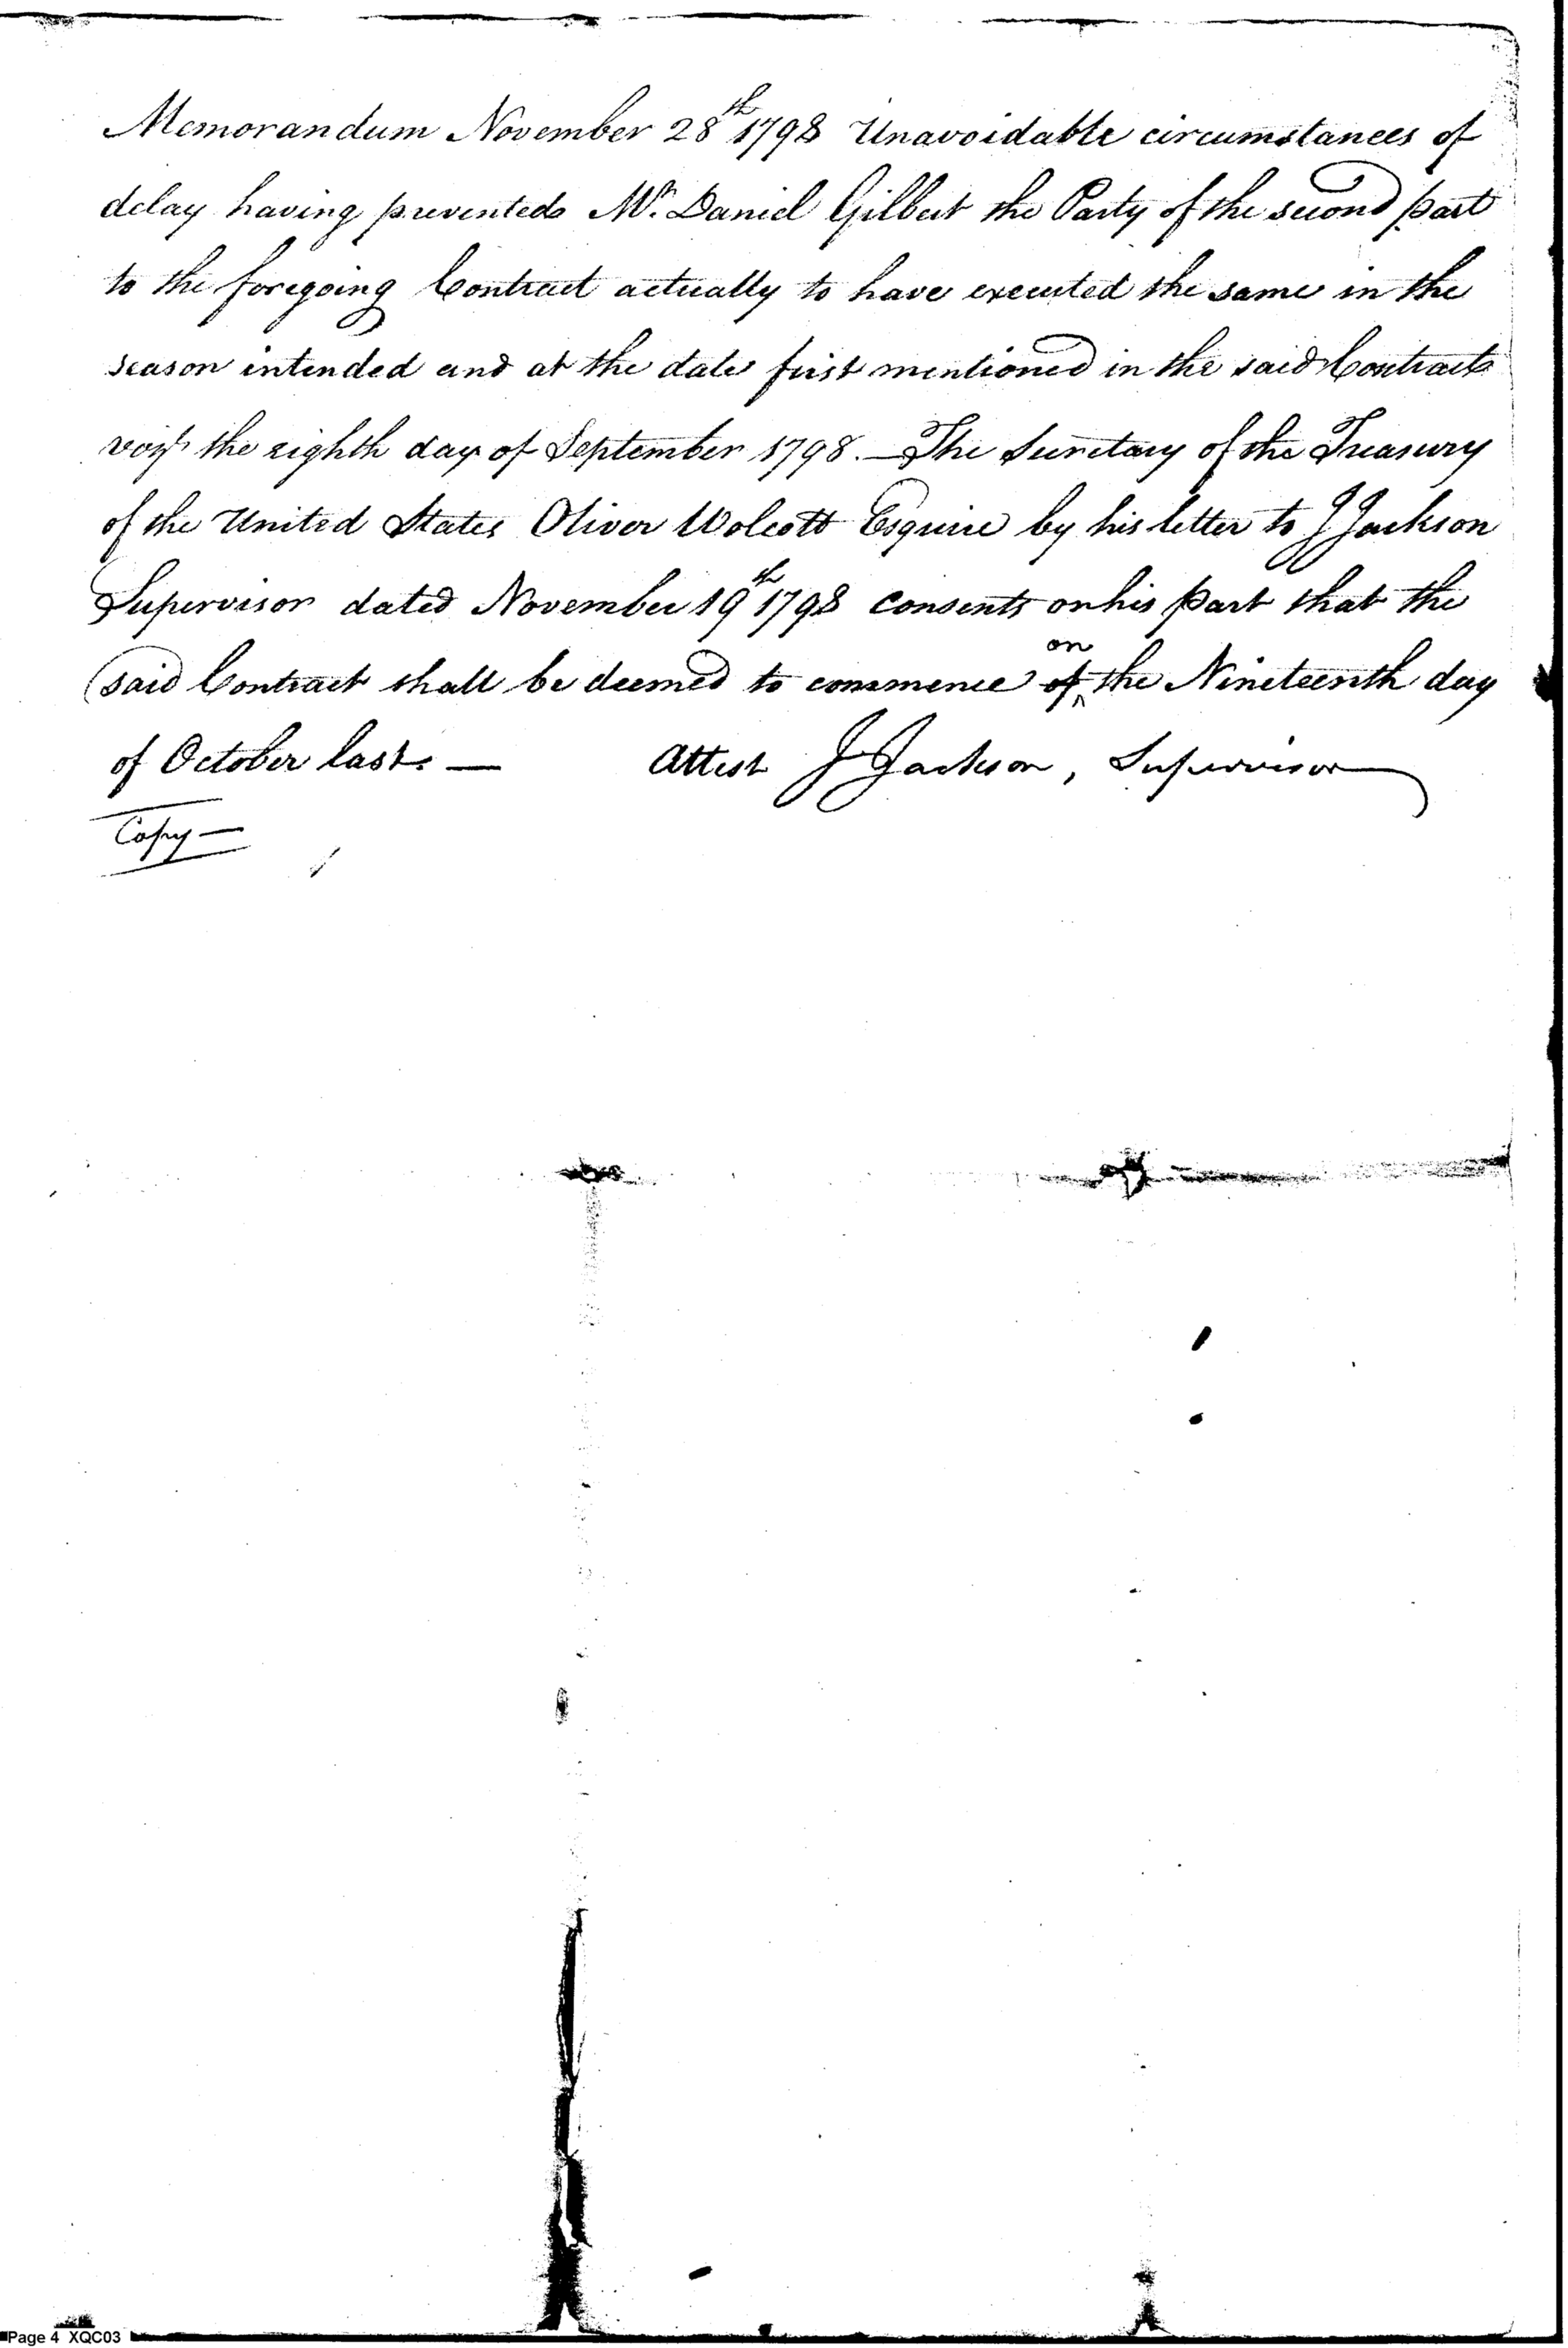 Memorandum November 28th 1798 Unavoidable circumstances of
delay having prevented Mr. Daniel Gilbert the Party of the second part
to the foregoing Contract actually to have executed the same in the
season intended and at the date first mentioned in the said Contract
vizt the eighth day of September 1798. — The Secretary of the Treasury
of the United States Oliver Wolcott Esquire by his letter to J Jackson
Supervisor dated November 19th 1798 consents on his part that the
said Contract shall be deemed to commence of on the Nineteenth day
of October last. — Attest J Jackson, Supervisor
Copy —
Page 4 XQC03